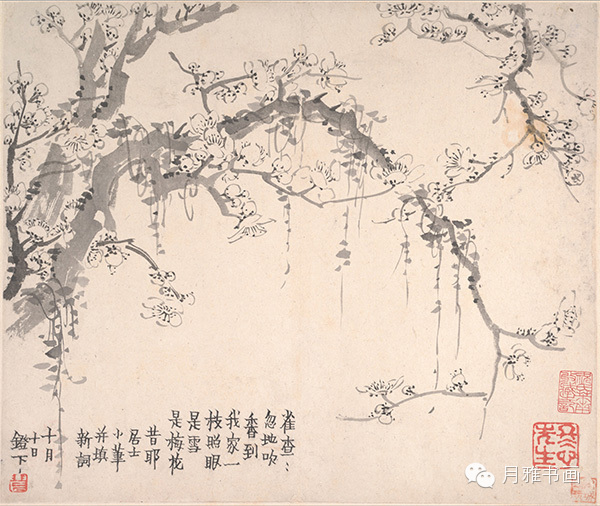 雀查:
忽地吹
香到
我家一
枝照眼
是雪
是梅花
昔耶
居士
小筆
并填
新詞
十月
十日
鐙下
冬心
先生
月雅书画